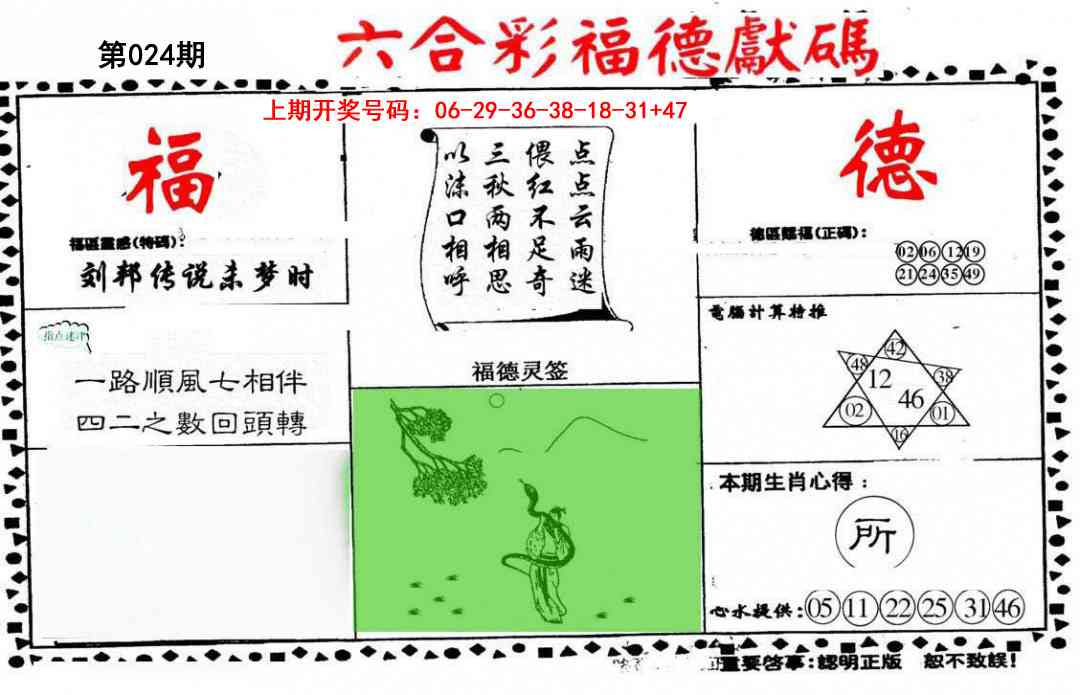 第024期
六合彩福德獻碼
上期开奖号码：06-29-36-38-18-31+47
福
福區靈感(特碼)：
刘邦传说未梦时
指点迷津
一路順風七相伴
四二之數回頭轉
点点云雨迷
偎红不足奇
三秋两相思
以沫口相呼
福德灵签
德
德區賜福(正碼)：
02 06 12 19
21 24 35 49
電腦計算特推
42
48 12 38
46
02 01
16
本期生肖心得：
所
心水提供：05 11 22 25 31 46
重要啓事：認明正版 恕不致誤！